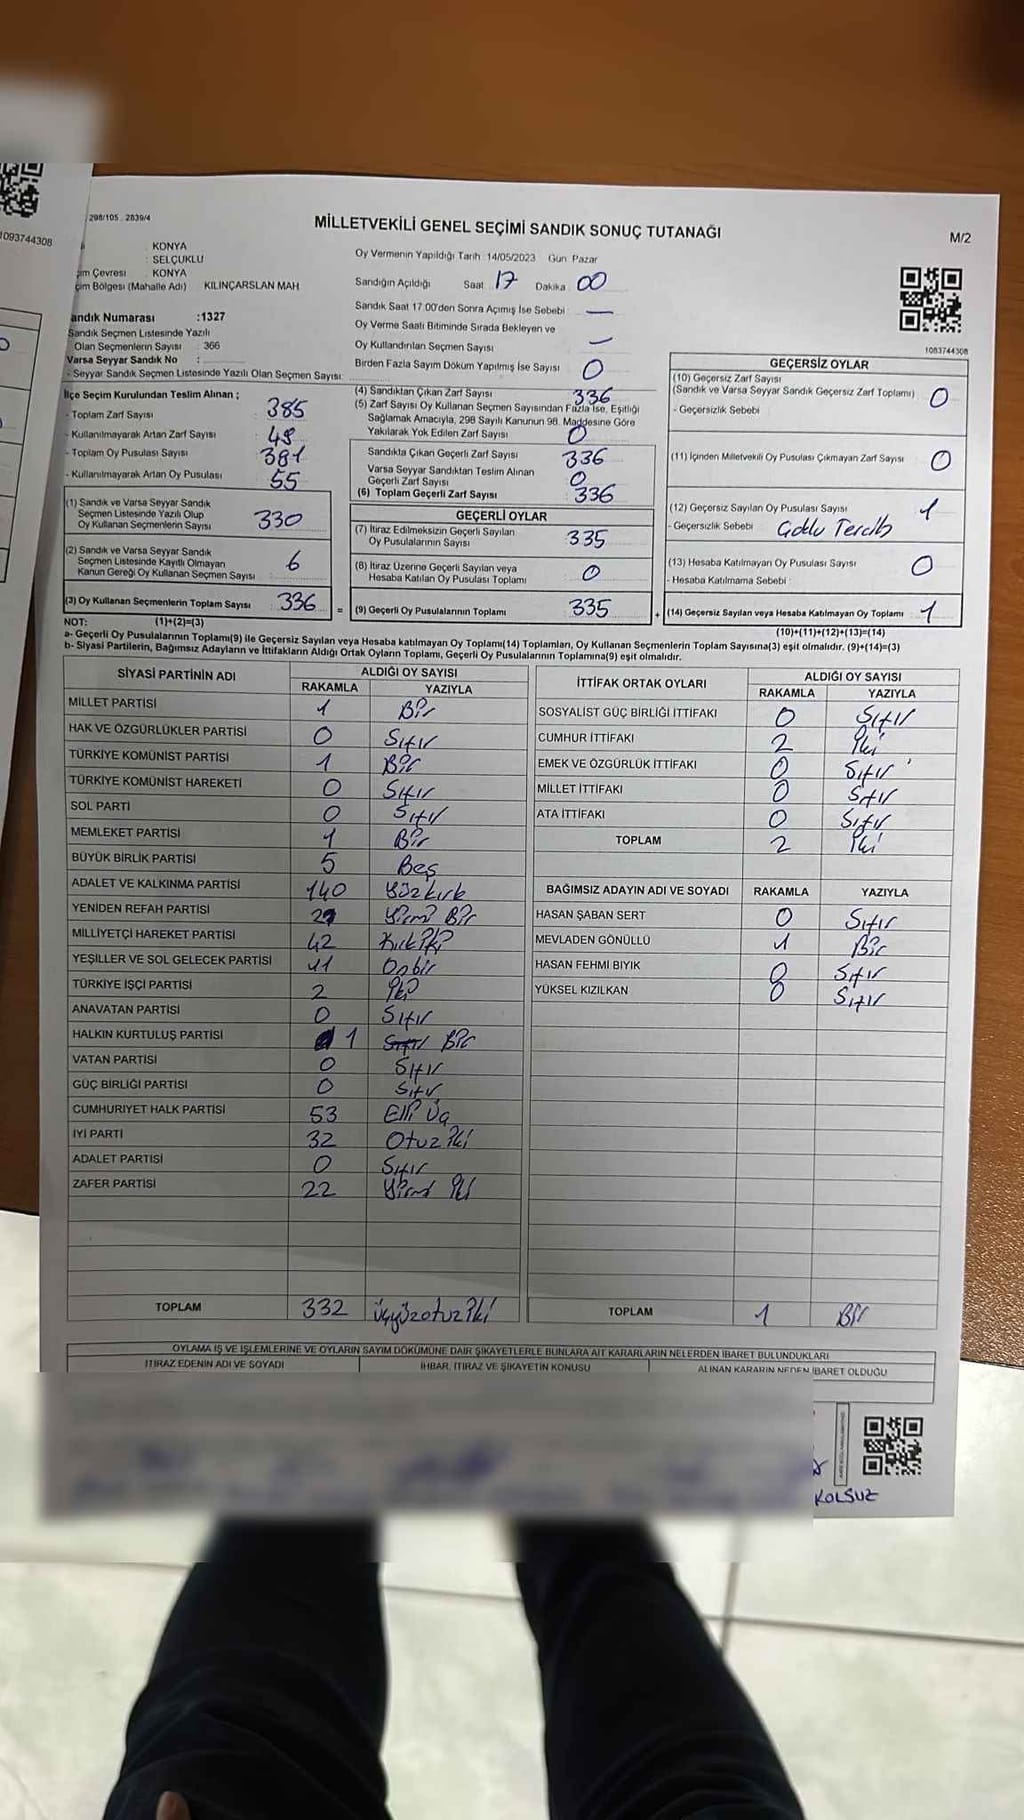 1093744308
298/105 . 2839/4
MİLLETVEKİLİ GENEL SEÇİMİ SANDIK SONUÇ TUTANAĞI
M/2
KONYA
SELÇUKLU
çim Çevresi : KONYA
çim Bölgesi (Mahalle Adı) KILINÇARSLAN MAH
Oy Vermenin Yapıldığı Tarih :14/05/2023 Gün: Pazar
Sandığın Açıldığı Saat: 17 Dakika: 00
Sandık Saat 17:00'den Sonra Açımış İse Sebebi : —
Oy Verme Saati Bitiminde Sırada Bekleyen ve
Oy Kullandırılan Seçmen Sayısı : —
Birden Fazla Sayım Döküm Yapılmış İse Sayısı : 0
1083744308
andık Numarası :1327
Sandık Seçmen Listesinde Yazılı
Olan Seçmenlerin Sayısı : 366
Varsa Seyyar Sandık No :
- Seyyar Sandık Seçmen Listesinde Yazılı Olan Seçmen Sayısı:
İlçe Seçim Kurulundan Teslim Alınan ;
- Toplam Zarf Sayısı : 385
- Kullanılmayarak Artan Zarf Sayısı : 49
- Toplam Oy Pusulası Sayısı : 391
- Kullanılmayarak Artan Oy Pusulası : 55
(1) Sandık ve Varsa Seyyar Sandık
Seçmen Listesinde Yazılı Olup
Oy Kullanan Seçmenlerin Sayısı : 330
(2) Sandık ve Varsa Seyyar Sandık
Seçmen Listesinde Kayıtlı Olmayan
Kanun Gereği Oy Kullanan Seçmen Sayısı : 6
(3) Oy Kullanan Seçmenlerin Toplam Sayısı : 336
(4) Sandıktan Çıkan Zarf Sayısı : 336
(5) Zarf Sayısı Oy Kullanan Seçmen Sayısından Fazla İse, Eşitliği
Sağlamak Amacıyla, 298 Sayılı Kanunun 98. Maddesine Göre
Yakılarak Yok Edilen Zarf Sayısı : 0
Sandıkta Çıkan Geçerli Zarf Sayısı : 336
Varsa Seyyar Sandıktan Teslim Alınan
Geçerli Zarf Sayısı : 0
(6) Toplam Geçerli Zarf Sayısı : 336
GEÇERLİ OYLAR
(7) İtiraz Edilmeksizin Geçerli Sayılan
Oy Pusulalarının Sayısı : 335
(8) İtiraz Üzerine Geçerli Sayılan veya
Hesaba Katılan Oy Pusulası Toplamı : 0
= (9) Geçerli Oy Pusulalarının Toplamı : 335
GEÇERSİZ OYLAR
(10) Geçersiz Zarf Sayısı
(Sandık ve Varsa Seyyar Sandık Geçersiz Zarf Toplamı) : 0
- Geçersizlik Sebebi :
(11) İçinden Milletvekili Oy Pusulası Çıkmayan Zarf Sayısı : 0
(12) Geçersiz Sayılan Oy Pusulası Sayısı : 1
- Geçersizlik Sebebi : Çoklu Tercih
(13) Hesaba Katılmayan Oy Pusulası Sayısı : 0
- Hesaba Katılmama Sebebi :
+ (14) Geçersiz Sayılan veya Hesaba Katılmayan Oy Toplamı : 1
NOT: (1)+(2)=(3)
(10)+(11)+(12)+(13)=(14)
a- Geçerli Oy Pusulalarının Toplamı(9) ile Geçersiz Sayılan veya Hesaba katılmayan Oy Toplamı(14) Toplamları, Oy Kullanan Seçmenlerin Toplam Sayısına(3) eşit olmalıdır. (9)+(14)=(3)
b- Siyasi Partilerin, Bağımsız Adayların ve İttifakların Aldığı Ortak Oyların Toplamı, Geçerli Oy Pusulalarının Toplamına(9) eşit olmalıdır.
SİYASİ PARTİNİN ADI ALDIĞI OY SAYISI
RAKAMLA YAZIYLA
MİLLET PARTİSİ 1 Bir
HAK VE ÖZGÜRLÜKLER PARTİSİ 0 Sıfır
TÜRKİYE KOMÜNİST PARTİSİ 1 Bir
TÜRKİYE KOMÜNİST HAREKETİ 0 Sıfır
SOL PARTİ 0 Sıfır
MEMLEKET PARTİSİ 1 Bir
BÜYÜK BİRLİK PARTİSİ 5 Beş
ADALET VE KALKINMA PARTİSİ 140 Yüzkırk
YENİDEN REFAH PARTİSİ 21 Yirmi Bir
MİLLİYETÇİ HAREKET PARTİSİ 42 Kırkiki
YEŞİLLER VE SOL GELECEK PARTİSİ 11 Onbir
TÜRKİYE İŞÇİ PARTİSİ 2 İki
ANAVATAN PARTİSİ 0 Sıfır
HALKIN KURTULUŞ PARTİSİ 1 Sıfır Bir
VATAN PARTİSİ 0 Sıfır
GÜÇ BİRLİĞİ PARTİSİ 0 Sıfır
CUMHURİYET HALK PARTİSİ 53 Elli Üç
İYİ PARTİ 32 Otuz iki
ADALET PARTİSİ 0 Sıfır
ZAFER PARTİSİ 22 Yirmi İki
TOPLAM 332 üçyüzotuz iki
İTTİFAK ORTAK OYLARI ALDIĞI OY SAYISI
RAKAMLA YAZIYLA
SOSYALİST GÜÇ BİRLİĞİ İTTİFAKI 0 Sıfır
CUMHUR İTTİFAKI 2 İki
EMEK VE ÖZGÜRLÜK İTTİFAKI 0 Sıfır
MİLLET İTTİFAKI 0 Sıfır
ATA İTTİFAKI 0 Sıfır
TOPLAM 2 İki
BAĞIMSIZ ADAYIN ADI VE SOYADI RAKAMLA YAZIYLA
HASAN ŞABAN SERT 0 Sıfır
MEVLADEN GÖNÜLLÜ 1 Bir
HASAN FEHMİ BIYIK 0 Sıfır
YÜKSEL KIZILKAN 0 Sıfır
TOPLAM 1 Bir
OYLAMA İŞ VE İŞLEMLERİNE VE OYLARIN SAYIM DÖKÜMÜNE DAİR ŞİKAYETLERLE BUNLARA AİT KARARLARIN NELERDEN İBARET BULUNDUKLARI
İTİRAZ EDENİN ADI VE SOYADI İHBAR, İTİRAZ VE ŞİKAYETİN KONUSU ALINAN KARARIN NEDEN İBARET OLDUĞU
KOLSUZ